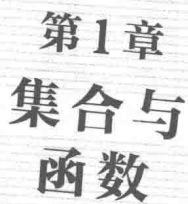 第1章
集合与
函数